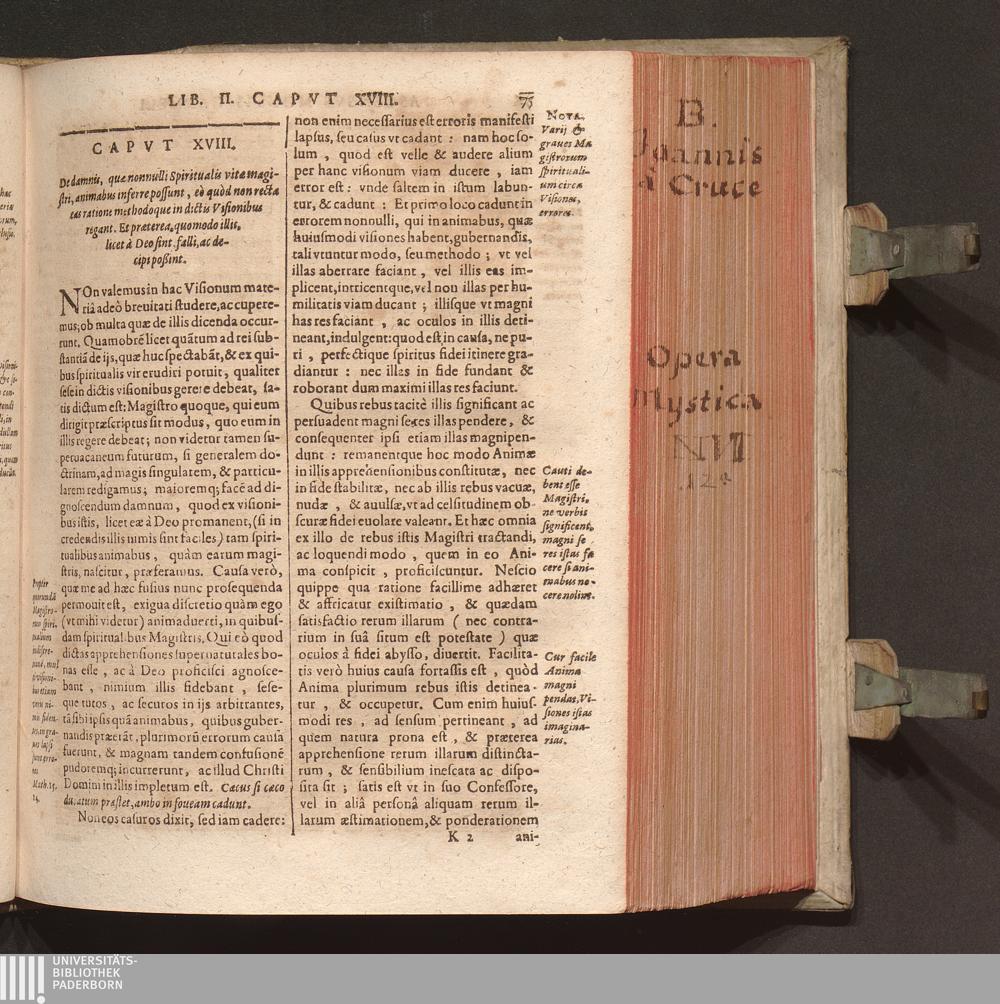 LIB. II. CAPVT XVIII. 75
CAPVT XVIII.
De damnis, quæ nonnulli Spiritualis vitæ magi-
stri, animabus inferre possunt, eò quòd non recta
eas ratione methodoque in dictis Visionibus
rigant. Et præterea, quomodo illis,
licet à Deo sint, falli, ac de-
cipi possint.
NOn valemus in hac Visionum mate-
riâ adeò brevitati studere, ac cupere-
mus; ob multa quæ de illis dicenda occur-
runt. Quamobrẽ licet quãtum ad rei sub-
stantiã de ijs, quæ huc spectabãt, & ex qui-
bus spiritualis vir erudiri potuit, qualiter
sese in dictis visionibus gerere debeat, sa-
tis dictum est: Magistro quoque, qui eum
dirigit præscriptus sit modus, quo eum in
illis regere debeat; non videtur tamen su-
peruacaneum futurum, si generalem do-
ctrinam, ad magis singularem, & particu-
larem redigamus; maioremq; facẽ ad di-
gnoscendum damnum, quod ex visioni-
bus istis, licet eæ à Deo promanent, (si in
credendis illis nimis sint faciles) tam spiri-
tualibus animabus, quàm earum magi-
stris, nascitur, præferamus. Causa verò,
quæ me ad hæc fusius nunc prosequenda
permouit est, exigua discretio quàm ego
(vt mihi videtur) animaduerti, in quibus-
dam spiritualibus Magistris. Qui eò quod
dictas apprehensiones supernaturales bo-
nas esse, ac à Deo proficisci agnosce-
bant, nimium illis fidebant, sese-
que tutos, ac securos in ijs arbitrantes,
tã sibi ipsis quã animabus, quibus guber-
nandis præerãt, plurimorũ errorum causa
fuerunt, & magnam tandem confusionẽ
pudoremq; incurrerunt, ac illud Christi
Domini in illis impletum est. Cæcus si cæco
ducatum præstet, ambo in foueam cadunt.
Non eos casuros dixit, sed iam cadere:
Math. 15.
14.
non enim necessarius est erroris manifesti
lapsus, seu casus vt cadant : nam hoc so-
lum, quod est velle & audere alium
per hanc visionum viam ducere, iam
error est : vnde saltem in istum labun-
tur, & cadunt : Et primo loco cadunt in
errorem nonnulli, qui in animabus, quæ
huiusmodi visiones habent, gubernandis,
tali vtuntur modo, seu methodo ; vt vel
illas aberrare faciant, vel illis eas im-
plicent, intricentque, vel non illas per hu-
militatis viam ducant ; illisque vt magni
has res faciant, ac oculos in illis deti-
neant, indulgent: quod est in causa, ne pu-
ri, perfectique spiritus fidei itinere gra-
diantur : nec illas in fide fundant &
roborant dum maximi illas res faciunt.
Quibus rebus tacitè illis significant ac
persuadent magni sese res illas pendere, &
consequenter ipsi etiam illas magnipen-
dunt : remanentque hoc modo Animæ
in illis apprehensionibus constitutæ, nec
in fide stabilitæ, nec ab illis rebus vacuæ,
nudæ, & auulsæ, vt ad celsitudinem ob-
scuræ fidei euolare valeant. Et hæc omnia
ex illo de rebus istis Magistri tractandi,
ac loquendi modo, quem in eo Ani-
ma conspicit, proficiscuntur. Nescio
quippe qua ratione facillime adhæret
& affricatur existimatio, & quædam
satisfactio rerum illarum ( nec contra-
rium in suâ situm est potestate ) quæ
oculos à fidei abysso, diuertit. Facilita-
tis verò huius causa fortassis est, quòd
Anima plurimum rebus istis detinea-
tur, & occupetur. Cum enim huius-
modi res, ad sensum pertineant, ad
quem natura prona est, & præterea
apprehensione rerum illarum distincta-
rum, & sensibilium inescata ac dispo-
sita sit ; satis est vt in suo Confessore,
vel in aliâ personâ aliquam rerum il-
larum æstimationem, & ponderationem
K 2 ani-
Nota.
Varij &
graues Ma
gistrorum
spirituali-
um circa
Visiones,
errores.
Cauti de-
bent esse
Magistri,
ne verbis
significent,
magni se
res istas fa
cere si ani-
mabus no-
cere nolint.
Cur facile
Anima
magni
pendat, Vi-
siones istas
imagina-
rias.
B.
Joannis
à Cruce
Opera
Mystica
UNIVERSITÄTS-
BIBLIOTHEK
PADERBORN